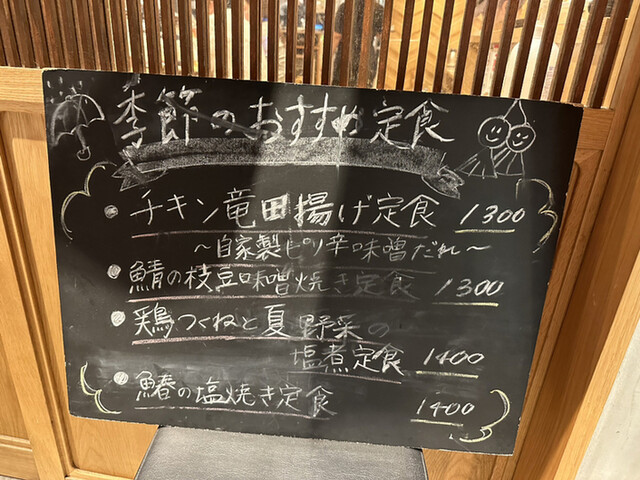 季節のおすすめ定食
・チキン竜田揚げ定食 1300
～自家製ピリ辛味噌だれ～
・鯖の枝豆味噌焼き定食 1300
・鶏つくねと夏野菜の
塩煮定食 1400
・鰆の塩焼き定食 1400